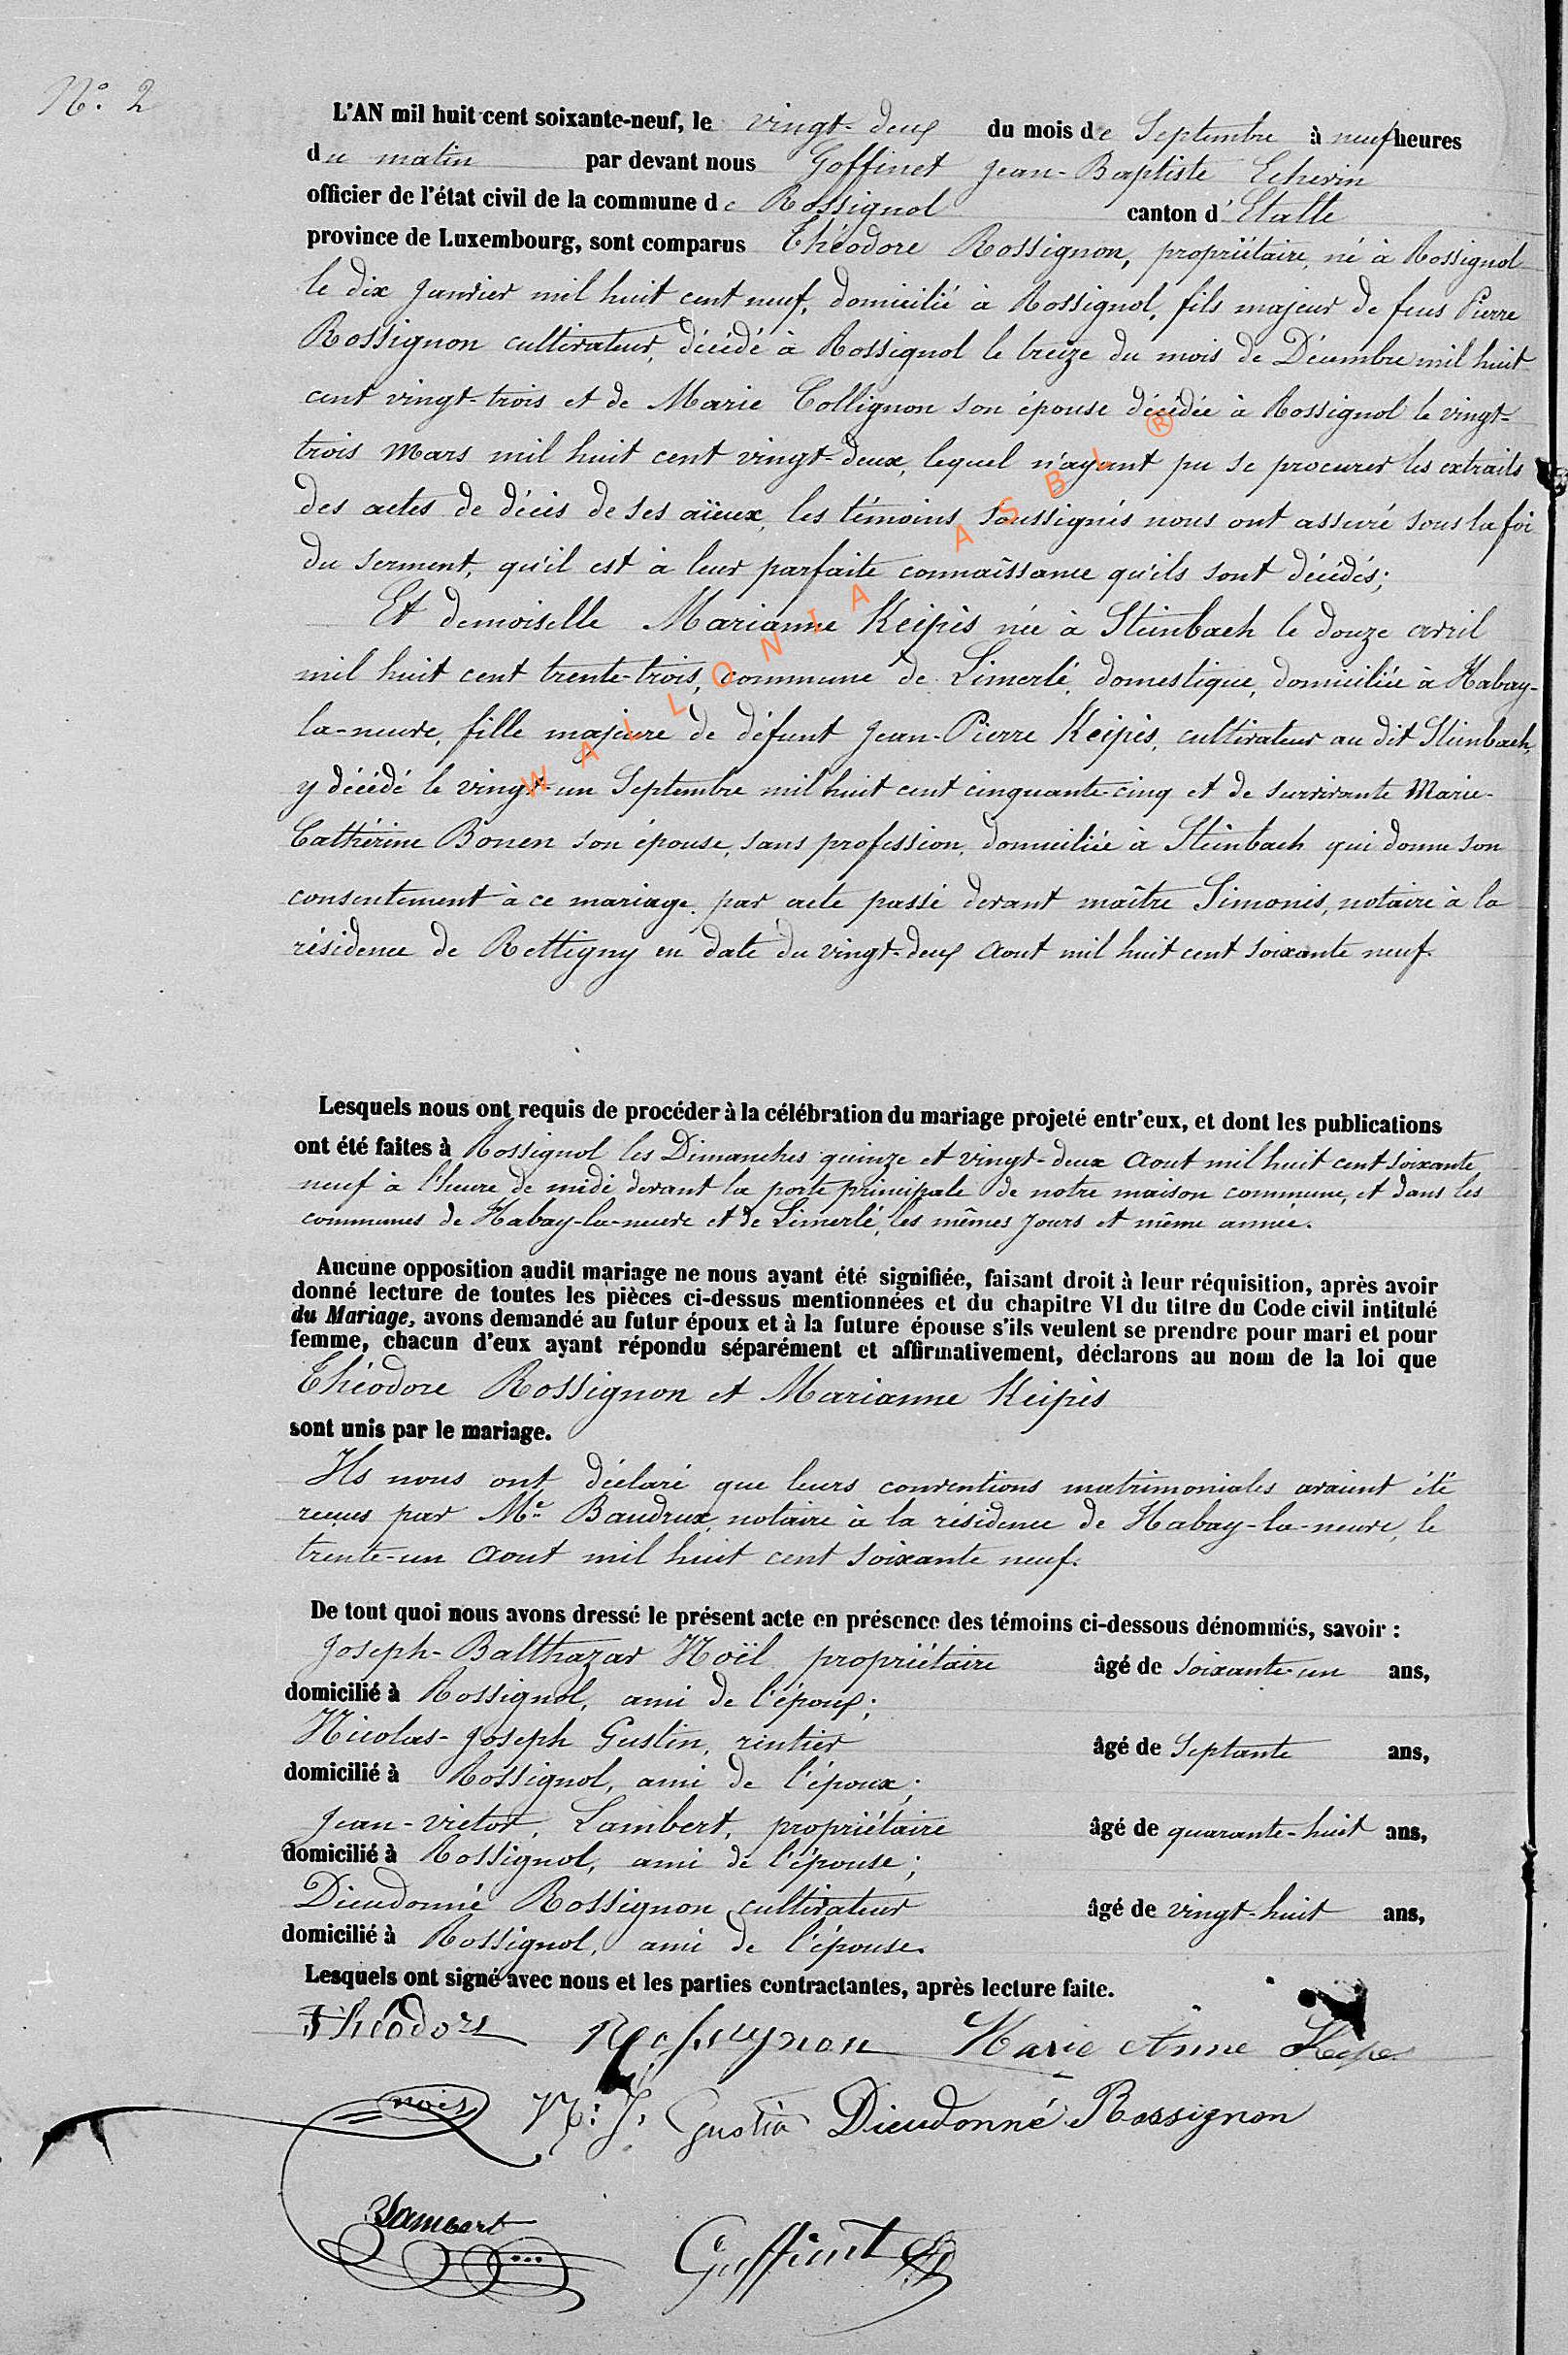 N°. 2
L'AN mil huit cent soixante-neuf, le vingt-deux du mois de Septembre à neuf heures
du matin par devant nous Goffinet Jean-Baptiste Echevin
officier de l'état civil de la commune de Rossignol canton d'Etalle
province de Luxembourg, sont comparus Théodore Rossignon, propriétaire, né à Rossignol
le dix Janvier mil huit cent neuf, domicilié à Rossignol, fils majeur de feus Pierre
Rossignon cultivateur, décédé à Rossignol le treize du mois de Décembre mil huit
cent vingt-trois et de Marie Collignon son épouse décédée à Rossignol le vingt-
trois Mars mil huit cent vingt-deux, lequel n'ayant pu se procurer les extraits
des actes de décès de ses aïeux, les témoins soussignés nous ont assuré sous la foi
du serment, qu'il est à leur parfaite connaîssance qu'ils sont décédés;
Et demoiselle Marianne Keipès née à Steinbach le douze avril
mil huit cent trente-trois, commune de Limerlé, domestique, domiciliée à Habay-
la-neuve, fille majeure de défunt Jean-Pierre Keipès, cultivateur au dit Steinbach,
y décédé le vingt-un Septembre mil huit cent cinquante-cinq et de survivante Marie-
Cathérine Bonen son épouse, sans profession, domiciliée à Steinbach qui donne son
consentement à ce mariage par acte passé devant maître Simonis, notaire à la
résidence de Rettigny en date du vingt-deux Aout mil huit cent soixante neuf.
Lesquels nous ont requis de procéder à la célébration du mariage projeté entr'eux, et dont les publications
ont été faites à Rossignol les Dimanches quinze et vingt-deux Aout mil huit cent soixante
neuf à l'heure de midi devant la porte principale de notre maison commune, et dans les
communes de Habay-la-neuve et de Limerlé, les mêmes jours et même année.
Aucune opposition audit mariage ne nous ayant été signifiée, faisant droit à leur réquisition, après avoir
donné lecture de toutes les pièces ci-dessus mentionnées et du chapitre VI du titre du Code civil intitulé
du Mariage, avons demandé au futur époux et à la future épouse s'ils veulent se prendre pour mari et pour
femme, chacun d'eux ayant répondu séparément et affirmativement, déclarons au nom de la loi que
Théodore Rossignon et Marianne Keipès
sont unis par le mariage.
Ils nous ont déclaré que leurs conventions matrimoniales avaient été
reçues par Me Baudrux, notaire à la résidence de Habay-la-neuve, le
trente-un Aout mil huit cent soixante neuf.
De tout quoi nous avons dressé le présent acte en présence des témoins ci-dessous dénommés, savoir :
Joseph-Balthazar Noël propriétaire âgé de soixante-un ans,
domicilié à Rossignol, ami de l'époux;
Nicolas-Joseph Gustin, rentier âgé de Septante ans,
domicilié à Rossignol, ami de l'époux;
Jean-victor, Lambert, propriétaire âgé de quarante-huit ans,
domicilié à Rossignol, ami de l'épouse;
Dieudonné Rossignon cultivateur âgé de vingt-huit ans,
domicilié à Rossignol, ami de l'épouse.
Lesquels ont signé avec nous et les parties contractantes, après lecture faite.
Théodore Rossignon Marie Anne
N: J: Gustin Dieudonné Rossignon
Lambert Goffinet
WALLONIA ASBL ®